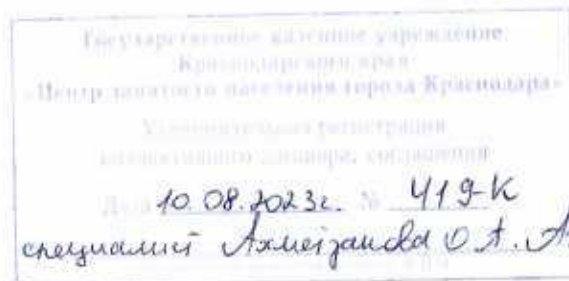 Государственное казенное учреждение
Краснодарского края
«Центр занятости населения города Краснодара»
Уведомительная регистрация
коллективного договора, соглашения
Дата 10.08.2023г. № 419-К
специалист Ахметзанова О.А.